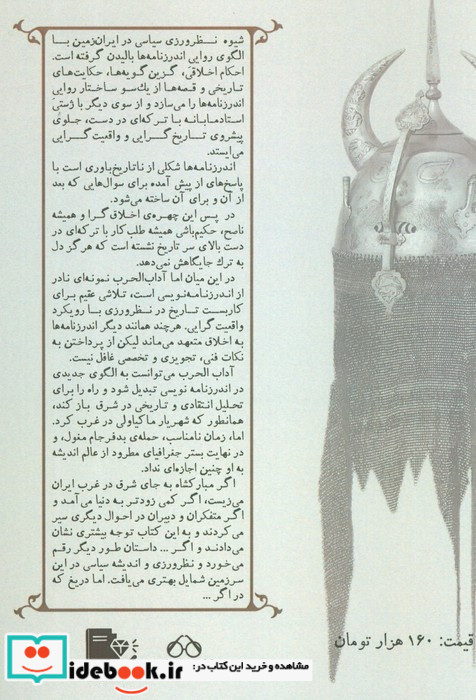 شیوه نظرورزی سیاسی در ایران‌زمین با
الگوی روایی اندرزنامه‌ها بالیدن گرفته است.
احکام اخلاقی، گزین گویه‌ها، حکایت‌های
تاریخی و قصه‌ها از یک‌سو ساختار روایی
اندرزنامه‌ها را می‌سازد و از سوی دیگر با ژستی
استادمابانه با ترکه‌ای در دست، جلوی
پیشروی تاریخ‌گرایی و واقعیت‌گرایی
می‌ایستد.
اندرزنامه‌ها شکلی از ناتاریخ‌باوری است با
پاسخ‌های از پیش آمده برای سوال‌هایی که بعد
از آن و برای آن ساخته می‌شود.
در پس این چهره‌ی اخلاق‌گرا و همیشه
ناصح، حکیم‌باشی همیشه طلب‌کار با ترکه‌ای در
دست بالای سر تاریخ نشسته است که هرگز دل
به ترک جایگاهش نمی‌دهد.
در این میان اما آداب‌الحرب نمونه‌ای نادر
از اندرزنامه‌نویسی است، تلاشی عقیم برای
کاربست تاریخ در نظرورزی با رویکرد
واقعیت‌گرایی. هرچند همانند دیگر اندرزنامه‌ها
به اخلاق متعهد می‌ماند لیکن از پرداختن به
نکات فنی، تجویزی و تخصصی غافل نیست.
آداب الحرب می‌توانست به الگوی جدیدی
در اندرزنامه نویسی تبدیل شود و راه را برای
تحلیل انتقادی و تاریخی در شرق باز کند،
همانطور که شهریار ماکیاولی در غرب کرد.
اما، زمان نامناسب، حمله‌ی بدفرجام مغول، و
در نهایت بستر جغرافیای مطرود از عالم اندیشه
به او چنین اجازه‌ای نداد.
اگر مبارکشاه به جای شرق در غرب ایران
می‌زیست، اگر کمی زودتر به دنیا می‌آمد و
اگر متفکران و دبیران در احوال دیگری سیر
می‌کردند و به این کتاب توجه بیشتری نشان
می‌دادند و اگر ... داستان طور دیگر رقم
می‌خورد و نظرورزی و اندیشه سیاسی در این
سرزمین شمایل بهتری می‌یافت. اما دریغ که
در اگر ...
قیمت: ۱۶۰ هزار تومان
مشاهده و خرید این کتاب در:
idebook.ir